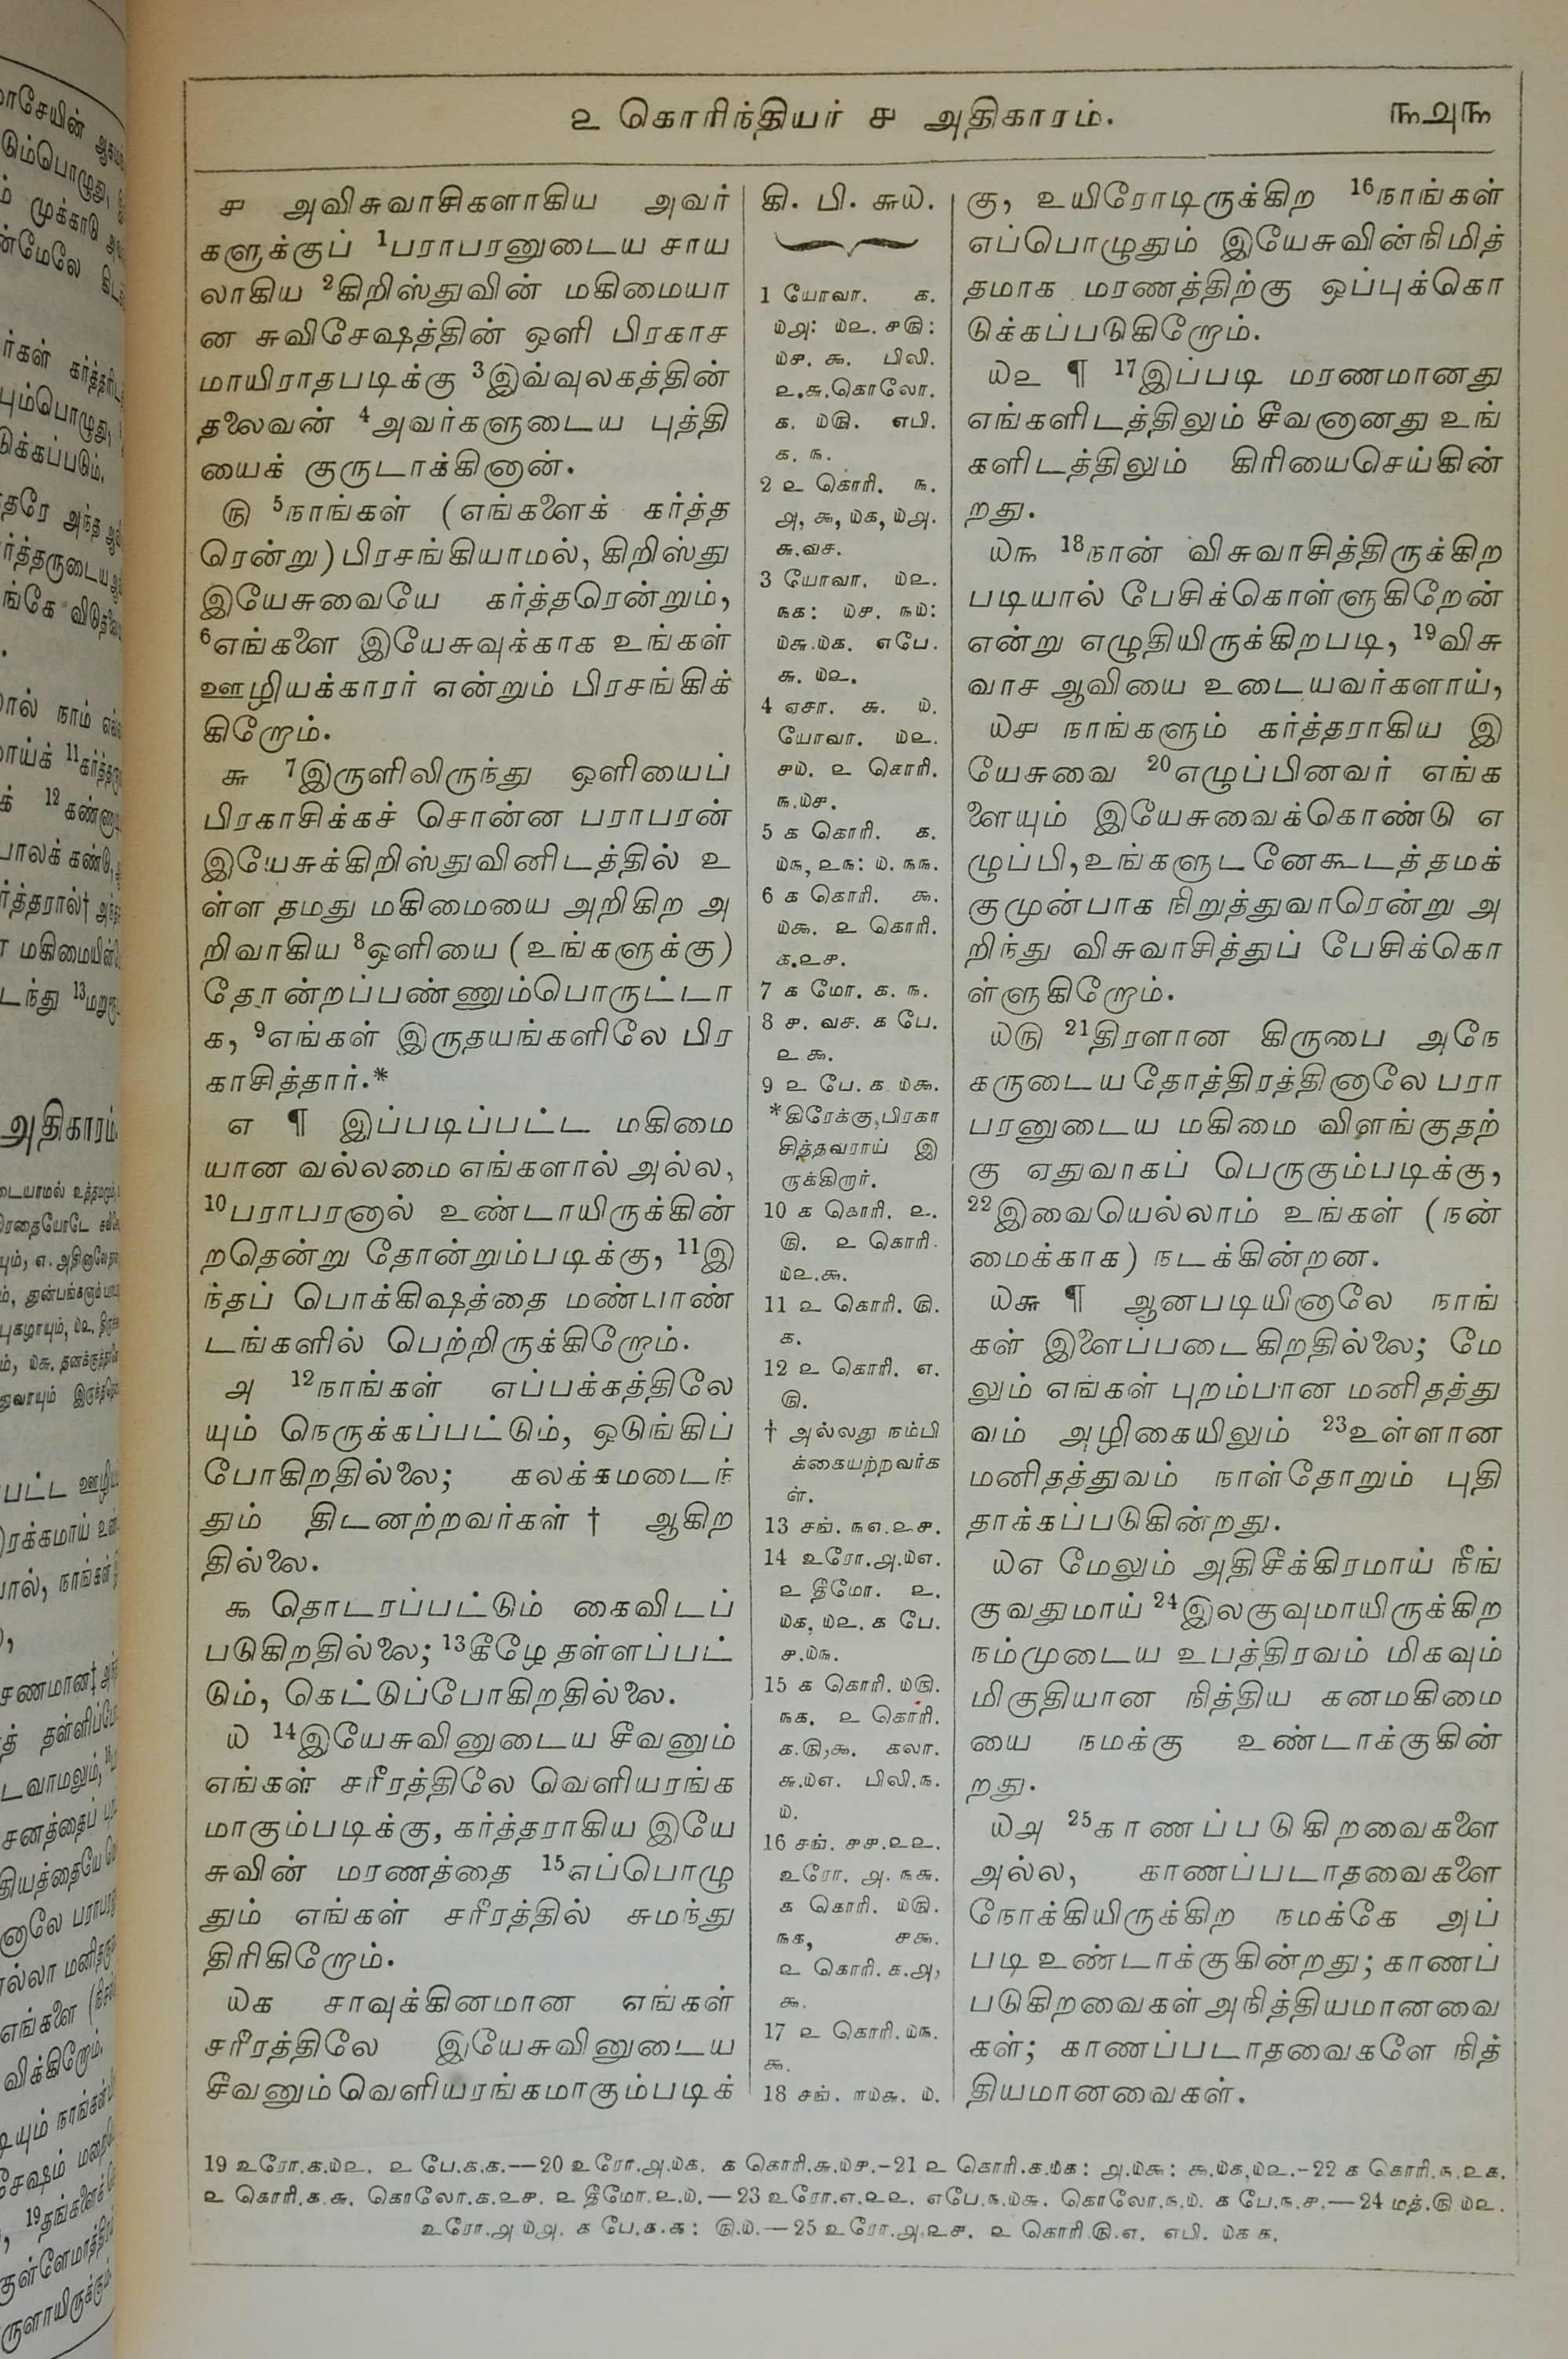 ௨ கொரிந்தியர் ௪ அதிகாரம்.
௩௮௩
௪ அவிசுவாசிகளாகிய அவர்
களுக்குப் 1பராபரனுடைய சாய
லாகிய 2கிறிஸ்துவின் மகிமையா
ன சுவிசேஷத்தின் ஒளி பிரகாச
மாயிராதபடிக்கு 3இவ்வுலகத்தின்
தலைவன் 4அவர்களுடைய புத்தி
யைக் குருடாக்கினான்.
௫ 5நாங்கள் (எங்களைக் கர்த்த
ரென்று) பிரசங்கியாமல், கிறிஸ்து
இயேசுவையே கர்த்தரென்றும்,
6எங்களை இயேசுவுக்காக உங்கள்
ஊழியக்காரர் என்றும் பிரசங்கிக்
கிறோம்.
௬ 7இருளிலிருந்து ஒளியைப்
பிரகாசிக்கச் சொன்ன பராபரன்
இயேசுக்கிறிஸ்துவினிடத்தில் உ
ள்ள தமது மகிமையை அறிகிற அ
றிவாகிய 8ஒளியை (உங்களுக்கு)
தோன்றப்பண்ணும்பொருட்டா
க, 9எங்கள் இருதயங்களிலே பிர
காசித்தார்.*
௭ ¶ இப்படிப்பட்ட மகிமை
யான வல்லமை எங்களால் அல்ல,
10பராபரனால் உண்டாயிருக்கின்
றதென்று தோன்றும்படிக்கு, 11இ
ந்தப் பொக்கிஷத்தை மண்பாண்
டங்களில் பெற்றிருக்கிறோம்.
௮ 12நாங்கள் எப்பக்கத்திலே
யும் நெருக்கப்பட்டும், ஒடுங்கிப்
போகிறதில்லை; கலக்கமடைந்
தும் திடனற்றவர்கள் † ஆகிற
தில்லை.
௯ தொடரப்பட்டும் கைவிடப்
படுகிறதில்லை; 13கீழே தள்ளப்பட்
டும், கெட்டுப்போகிறதில்லை.
௰ 14இயேசுவினுடைய சீவனும்
எங்கள் சரீரத்திலே வெளியரங்க
மாகும்படிக்கு, கர்த்தராகிய இயே
சுவின் மரணத்தை 15எப்பொழு
தும் எங்கள் சரீரத்தில் சுமந்து
திரிகிறோம்.
௰௧ சாவுக்கினமான எங்கள்
சரீரத்திலே இயேசுவினுடைய
சீவனும் வெளியரங்கமாகும்படிக்
கி. பி. ௬௰.
1 யோவா. ௧.
௰௮: ௰௨. ௪௫:
௰௪. ௯. பிலி.
௨.௬.கொலோ.
௧. ௰௫. எபி.
௧. ௩.
2 ௨ கொரி. ௩.
௮, ௯, ௰௧, ௰௮.
௬.வச.
3 யோவா. ௰௨.
௩௧: ௰௪. ௩௰:
௰௬.௰௧. எபே.
௬. ௰௨.
4 ஏசா. ௬. ௰.
யோவா. ௰௨.
௪௰. ௨ கொரி.
௩.௰௪.
5 ௧ கொரி. ௧.
௰௩, ௨௩: ௰. ௩௩.
6 ௧ கொரி. ௯.
௰௯. ௨ கொரி.
௧.௨௪.
7 ௧ மோ. ௧. ௩.
8 ௪. வச. ௧ பே.
௨ ௯.
9 ௨ பே. ௧ ௰௯.
*கிரேக்கு, பிரகா
சித்தவராய் இ
ருக்கிறார்.
10 ௧ கொரி. ௨.
௫. ௨ கொரி.
௰௨.௯.
11 ௨ கொரி. ௫.
௧.
12 ௨ கொரி. ௭.
௫.
† அல்லது நம்பி
க்கையற்றவர்க
ள்.
13 சங். ௩௭.௨௪.
14 உரோ.௮.௰௭.
௨ தீமோ. ௨.
௰௧, ௰௨. ௧ பே.
௪.௰௩.
15 ௧ கொரி. ௰௫.
௩௧. ௨ கொரி.
௧.௫,௯. கலா.
௬.௰௭. பிலி.௩.
௰.
16 சங். ௪௪.௨௨.
உரோ. ௮. ௩௬.
௧ கொரி. ௰௫.
௩௧, ௪௯.
௨ கொரி.௧.௮,
௯.
17 ௨ கொரி.௰௩.
௯.
18 சங். ௱௰௬. ௰.
கு, உயிரோடிருக்கிற 16நாங்கள்
எப்பொழுதும் இயேசுவின்நிமித்
தமாக மரணத்திற்கு ஒப்புக்கொ
டுக்கப்படுகிறோம்.
௰௨ ¶ 17இப்படி மரணமானது
எங்களிடத்திலும் சீவனானது உங்
களிடத்திலும் கிரியைசெய்கின்
றது.
௰௩ 18நான் விசுவாசித்திருக்கிற
படியால் பேசிக்கொள்ளுகிறேன்
என்று எழுதியிருக்கிறபடி, 19விசு
வாச ஆவியை உடையவர்களாய்,
௰௪ நாங்களும் கர்த்தராகிய இ
யேசுவை 20எழுப்பினவர் எங்க
ளையும் இயேசுவைக்கொண்டு எ
ழுப்பி, உங்களுடனேகூடத் தமக்
குமுன்பாக நிறுத்துவாரென்று அ
றிந்து விசுவாசித்துப் பேசிக்கொ
ள்ளுகிறோம்.
௰௫ 21திரளான கிருபை அநே
கருடைய தோத்திரத்தினாலே பரா
பரனுடைய மகிமை விளங்குதற்
கு ஏதுவாகப் பெருகும்படிக்கு,
22இவையெல்லாம் உங்கள் (நன்
மைக்காக) நடக்கின்றன.
௰௬ ¶ ஆனபடியினாலே நாங்
கள் இளைப்படைகிறதில்லை; மே
லும் எங்கள் புறம்பான மனிதத்து
வம் அழிகையிலும் 23உள்ளான
மனிதத்துவம் நாள்தோறும் புதி
தாக்கப்படுகின்றது.
௰௭ மேலும் அதிசீக்கிரமாய் நீங்
குவதுமாய் 24இலகுவுமாயிருக்கிற
நம்முடைய உபத்திரவம் மிகவும்
மிகுதியான நித்திய கனமகிமை
யை நமக்கு உண்டாக்குகின்
றது.
௰௮ 25காணப்படுகிறவைகளை
அல்ல, காணப்படாதவைகளை
நோக்கியிருக்கிற நமக்கே அப்
படி உண்டாக்குகின்றது; காணப்
படுகிறவைகள் அநித்தியமானவை
கள்; காணப்படாதவைகளே நித்
தியமானவைகள்.
19 உரோ.௧.௰௨. ௨ பே.௧.௧.—20 உரோ.௮.௰௧. ௧ கொரி.௬.௰௪.-21 ௨ கொரி.௧.௰௧: ௮.௰௯: ௯.௰௧,௰௨.-22 ௧ கொரி.௩.௨௧.
௨ கொரி.௧.௬. கொலோ.௧.௨௪. ௨ தீமோ.௨.௰.—23 உரோ.௭.௨௨. எபே.௩.௰௬. கொலோ.௩.௰. ௧ பே.௩.௪.—24 மத்.௫ ௰௨.
உரோ.௮ ௰௮. ௧ பே.௧.௧: ௫.௰.—25 உரோ.௮.௨௪. ௨ கொரி.௫.௭. எபி. ௰௧ ௧.